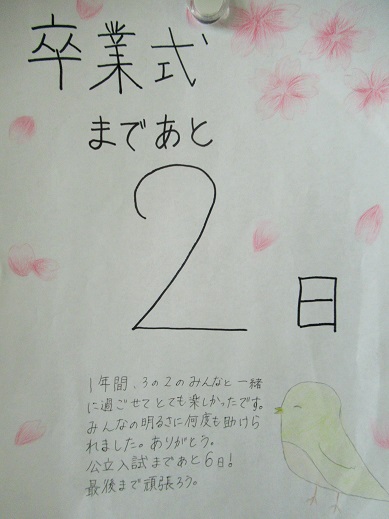 卒業式
まであと
2日
1年間、3の2のみんなと一緒
に過ごせてとても楽しかったです。
みんなの明るさに何度も助けら
れました。ありがとう。
公立入試まであと6日!
最後まで頑張ろう。